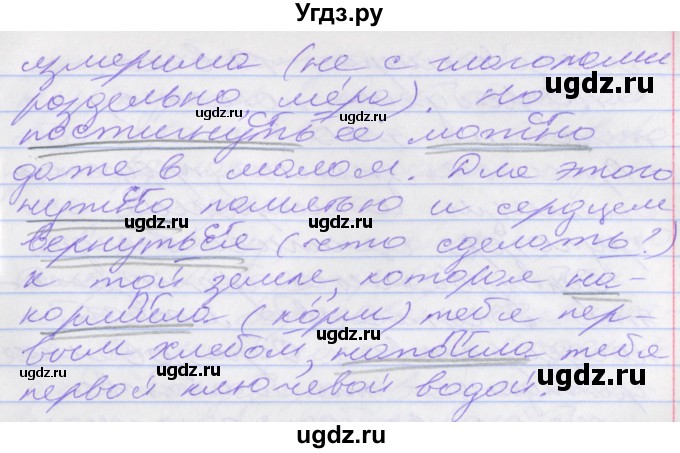 Угдз.ру
измерима (не с глаголами
раздельно, мера). Но
постигнуть ее можно
даже в малом. Для этого
нужно памятью и сердцем
вернуться (что сделать?)
к той земле, которая на-
кормила (корм) тебя пер-
вым хлебом, напоила тебя
первой ключевой водой.
ugdz.ru
ugdz.ru
ugdz.ru
ugdz.ru
ugdz.ru
ugdz.ru
ugdz.ru
ugdz.ru
ugdz.ru
ugdz.ru
ugdz.ru
ugdz.ru
ugdz.ru